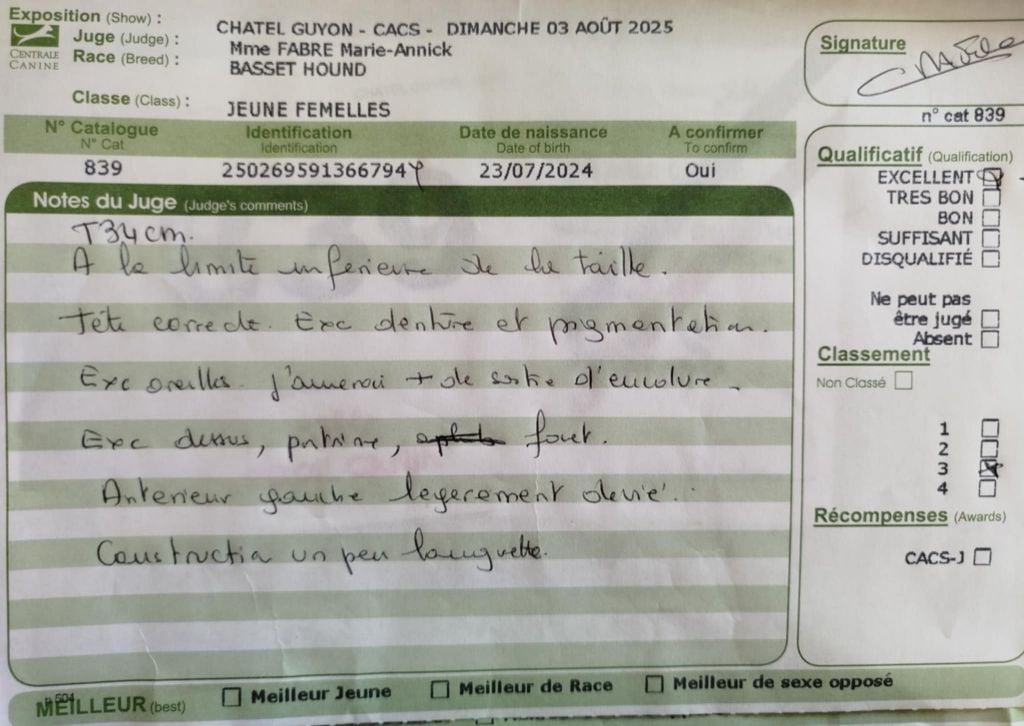 Exposition (Show) : CHATEL GUYON - CACS - DIMANCHE 03 AOÛT 2025
Juge (Judge) : Mme FABRE Marie-Annick
Race (Breed) : BASSET HOUND
CENTRALE
CANINE
Classe (Class) : JEUNE FEMELLES
N° Catalogue Identification Date de naissance A confirmer
N° Cat Identification Date of birth To confirm
839 250269591366794 23/07/2024 Oui
Notes du Juge (Judge's comments)
T34cm.
A la limite inferieure de la taille.
Tête correcte. Exc denture et pigmentation.
Exc oreilles. J'aimerai + de sortie d'encolure.
Exc dessus, poitrine, fouet.
Anterieur gauche legerement devié.
Construction un peu longuette.
Signature
n° cat 839
Qualificatif (Qualification)
EXCELLENT
TRES BON
BON
SUFFISANT
DISQUALIFIÉ
Ne peut pas
être jugé
Absent
Classement
Non Classé
1
2
3
4
Récompenses (Awards)
CACS-J
MEILLEUR (best) Meilleur Jeune Meilleur de Race Meilleur de sexe opposé